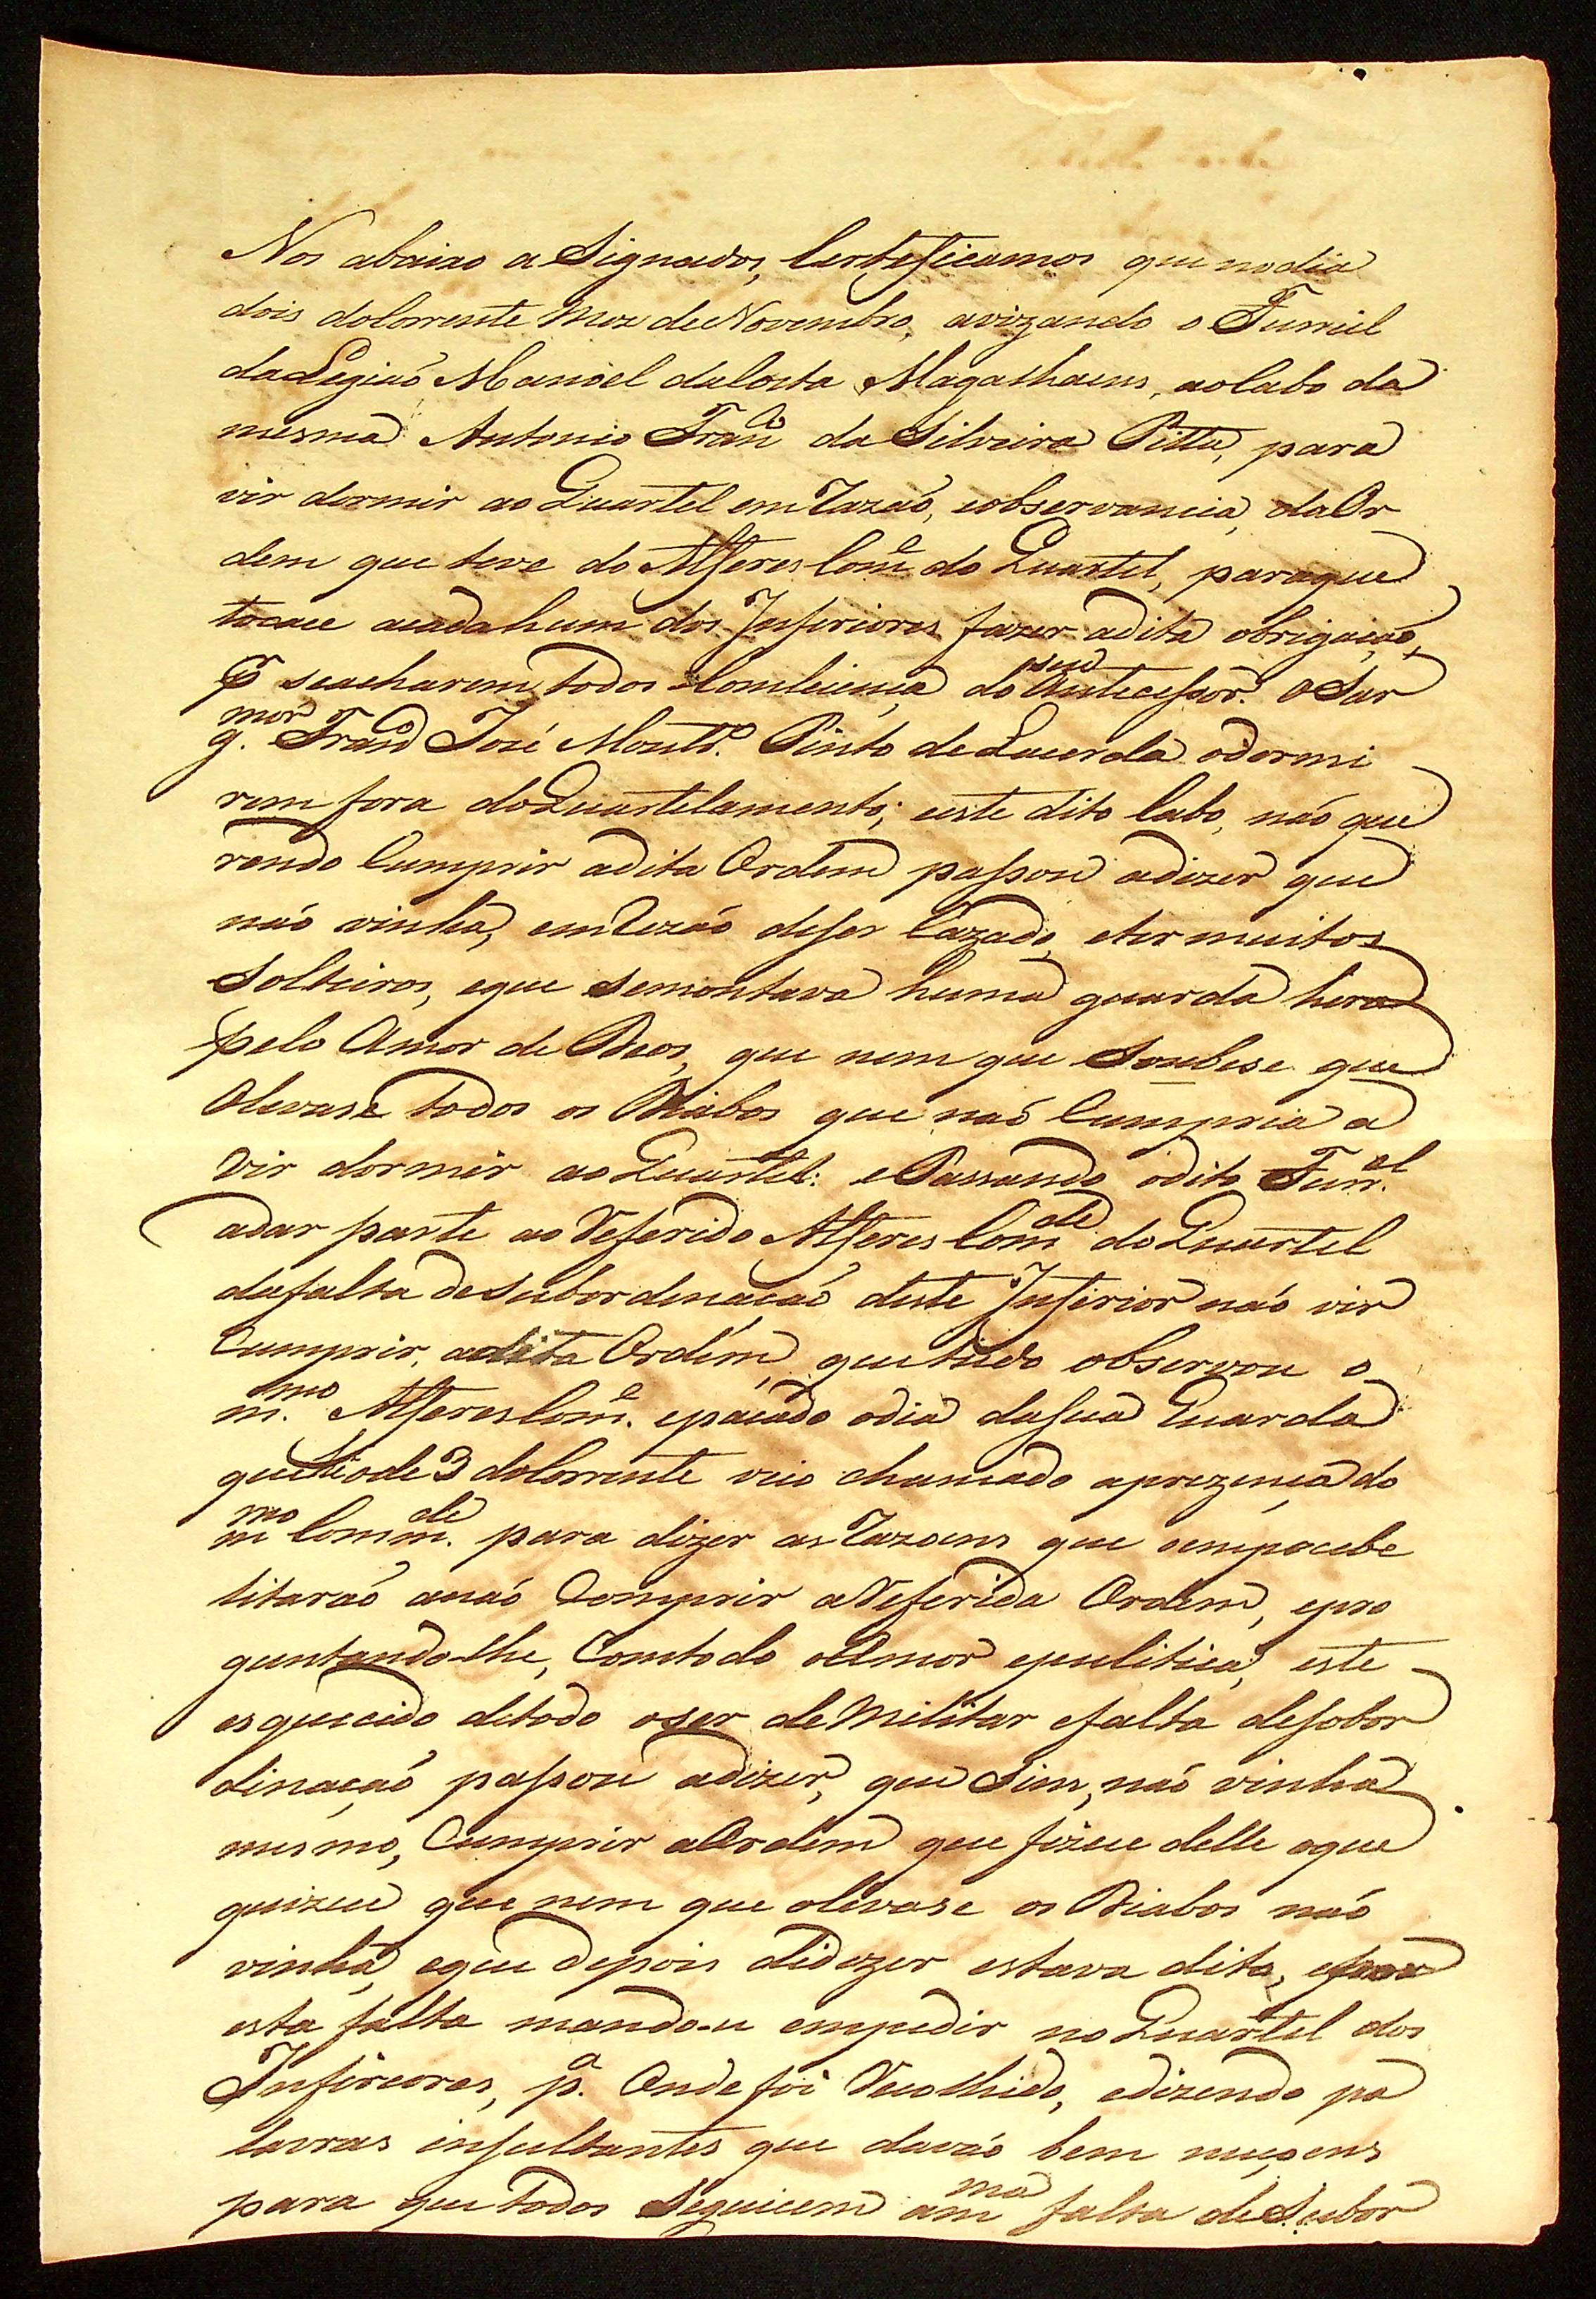 Nos abaixo a Signados, Certeficamos que nodia
dois doCorrente Mez deeNovembro, avizando o Furriel
daLegiaó Manoel daCosta Magalhaens, aoCabo da
mesma Antonio Franco da Silveira Pitta, para
vir dormir ao Quartel emRazaó, eobservancia, daOr
dem que teve do Alferes Come do Quartel, paraque
tocace acadahum dos Inferiores fazer adita obrigaçaó,
P seacharem todos Comlicença do seu Antecessor. o Sar
g.mor Franco José Montro. Pinto de Lacerda odormi
rem fora doQuartelamento; eeste dito Cabo, naó que
rendo Cumprir adita Ordem passou adizer que
naó vinha, emRezaó deser Cazado, eter muitos
Solteiros, eque Semontava huma guarda hera
pelo Amor de Deos, que nem que Soubese que
Olevase todos os Diabos que naó Cumpria a
Vir dormir ao Quartel: ePassando odito Furr.el
adar parte ao Referido Alferes Comde do Quartel
dafalta deSubordenacaó deste Inferior naó vir
Cumprir, adita Ordem, quetudo observou o
m.mo Alferes Come. epacado odia daSua Guarda
quehode 3 doCorrente veio chamado aprezença do
mmo Comm.de para dizer as Razoens que oempocebe
litaraó anaó Comprir aReferida Ordem, epre
guntando-lhe, Comtodo oAmor epulitica, este
esquecido detodo oser deMilitar efalta desobor
dinaçaó passou adizer, que Sim, naó vinha
mesmo, Cumprir aOrdem que fizece delle oque
quizece que nem que olevase os Diabos naó
vinha, eque depois didezer estava dito, epor
esta falta mandou empedir no Quartel dos
Inferiores, p.a Onde foi Recolhido, edizendo pa
lavras insultantes que davaó bem
para que todos Seguicem amma falta deSubor